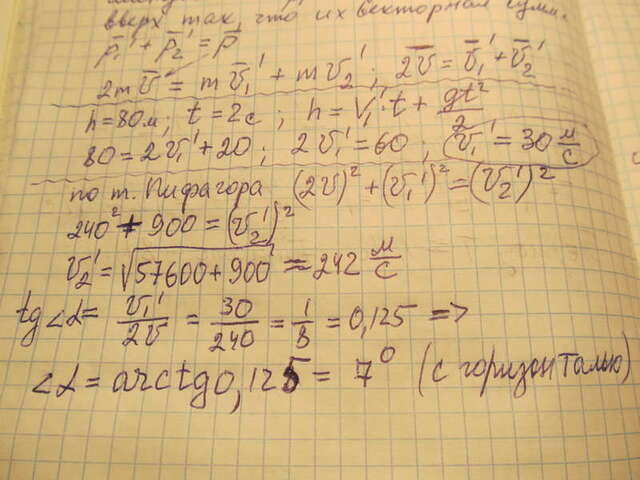 вверх так, что их векторная сумм.
p̄₁' + p̄₂' = p̄
2m v̄ = m v̄₁' + m v̄₂' ; 2v̄ = v̄₁' + v̄₂'
h = 80м; t = 2с ; h = v₁'·t + gt²/2
80 = 2v₁' + 20 ; 2v₁' = 60 ; v₁' = 30 м/с
по т. Пифагора (2v)² + (v₁')² = (v₂')²
240² + 900 = (v₂')²
v₂' = √57600 + 900 ≈ 242 м/с
tg ∠α = v₁'/2v = 30/240 = 1/8 = 0,125 =>
∠α = arctg 0,125 = 7⁰ (с горизонталью)